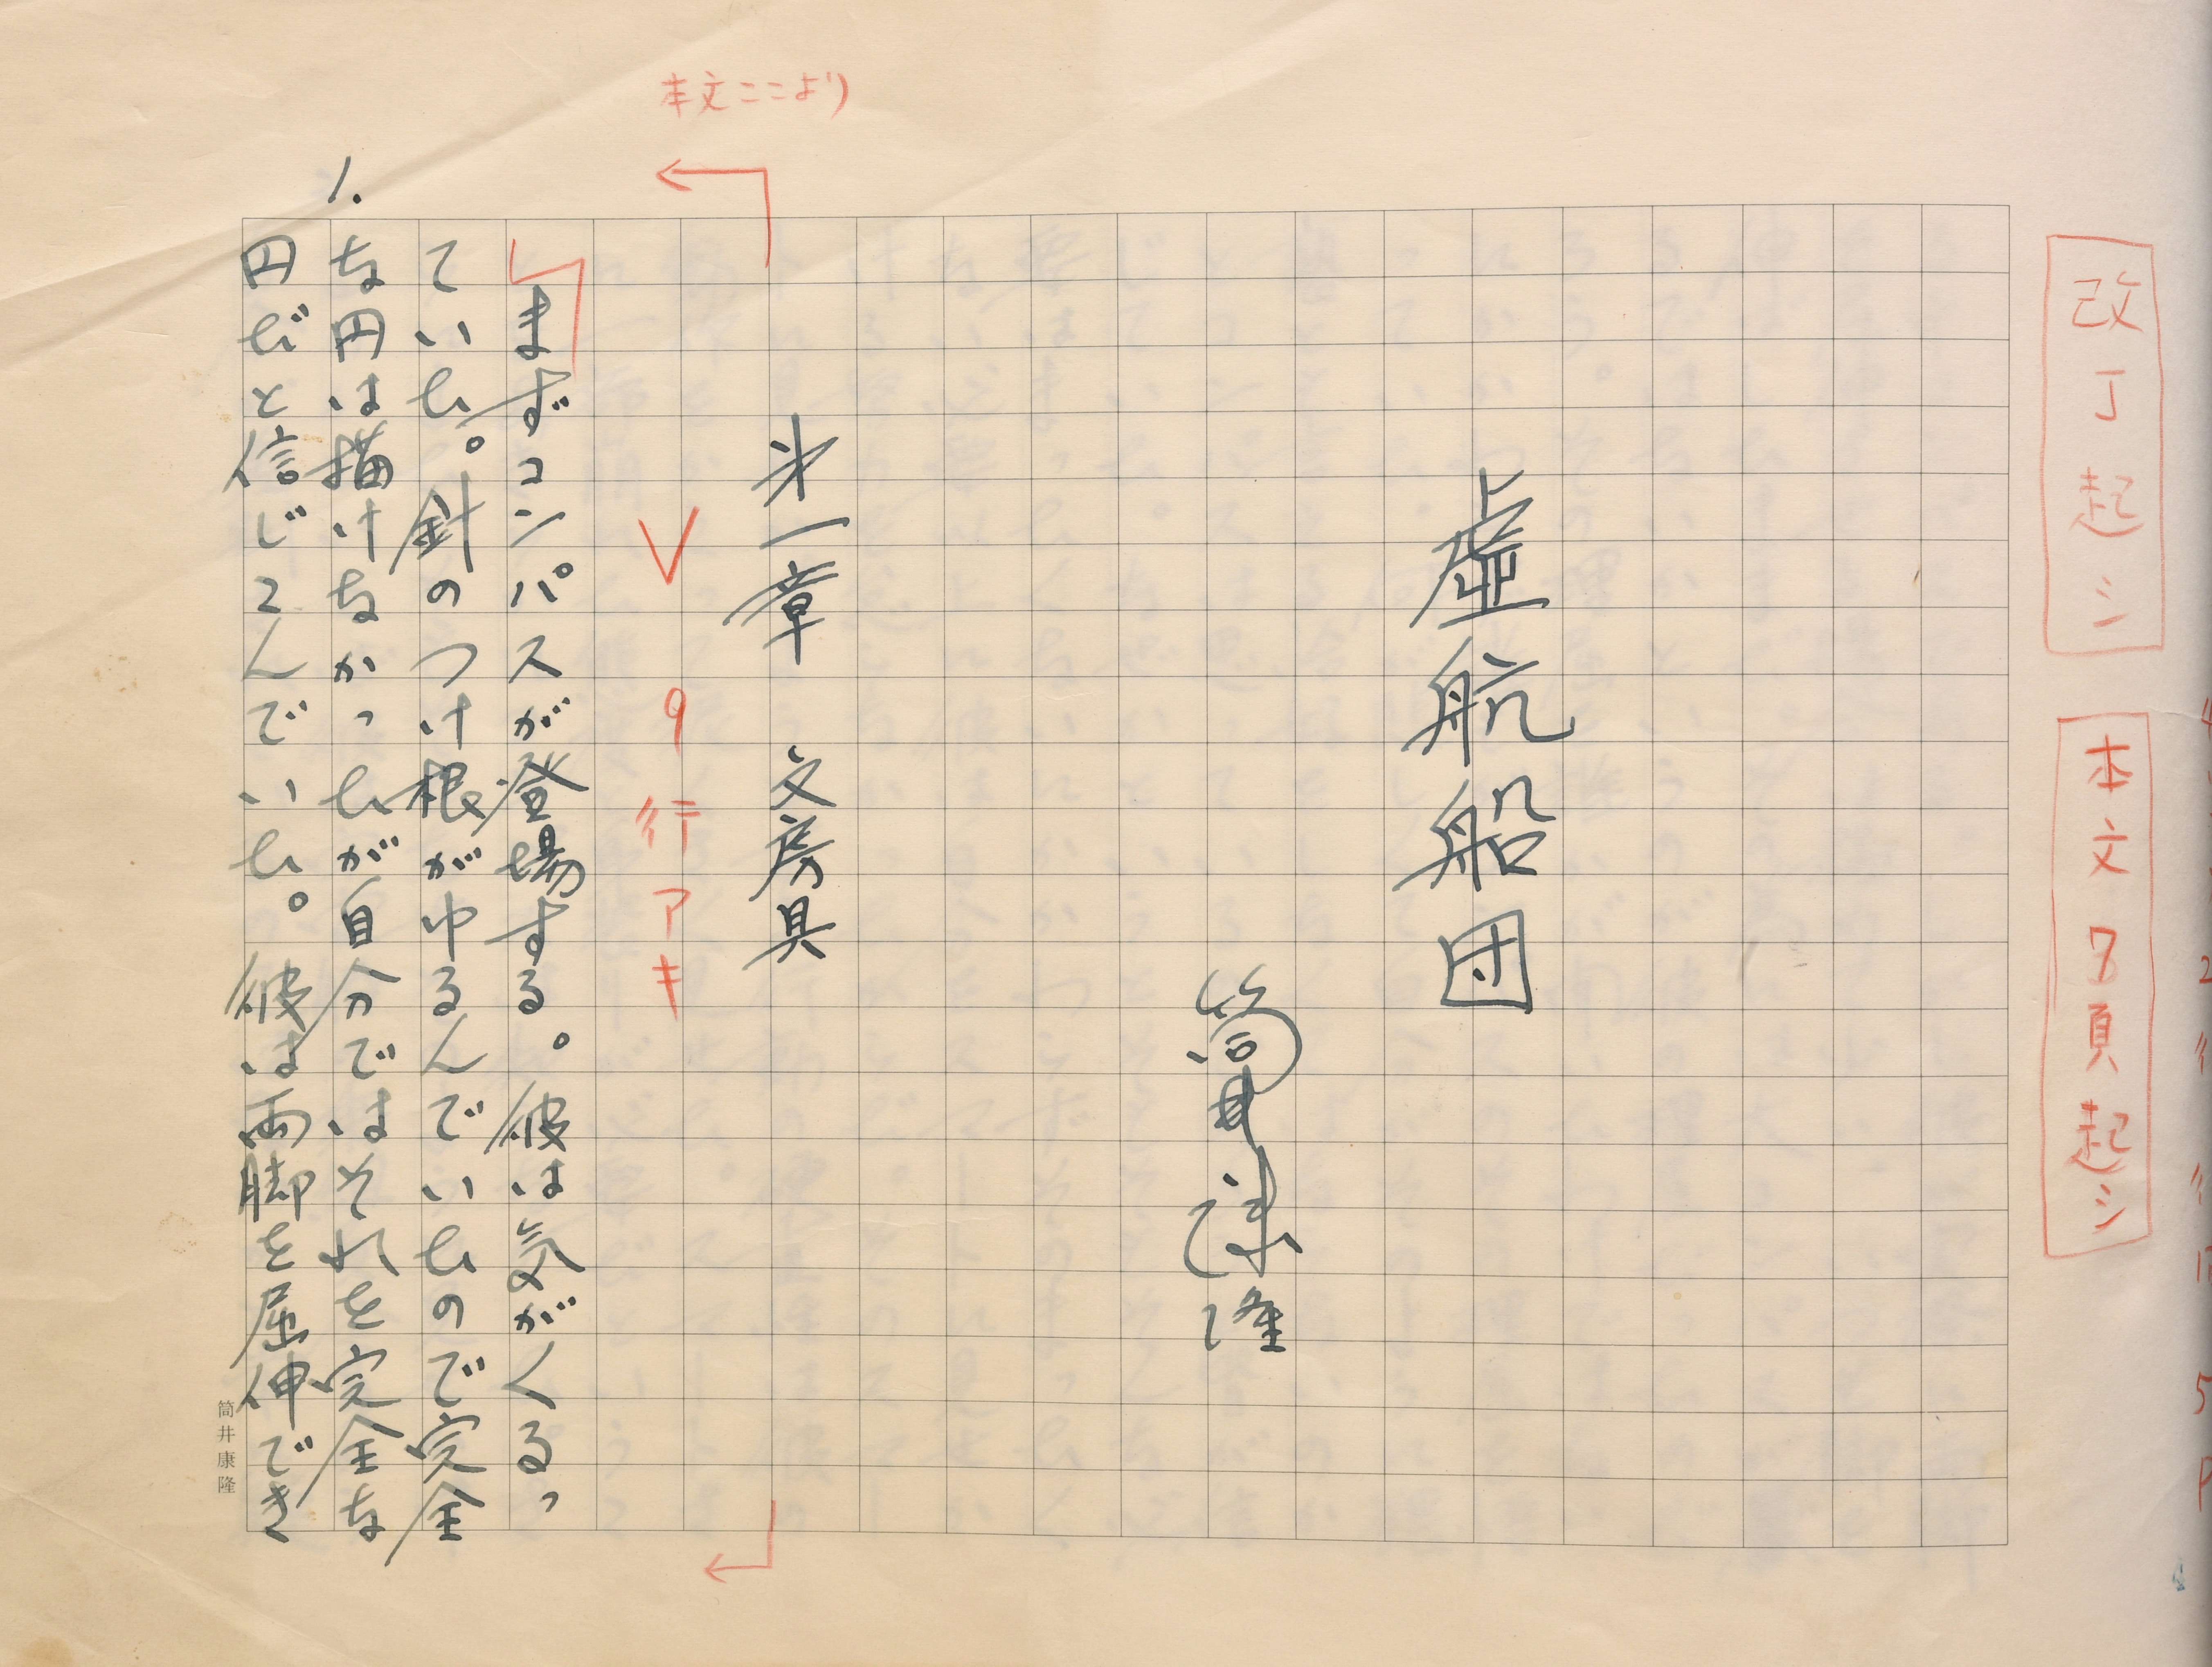 改丁起シ
本文7頁起シ
虚航船団
筒井康隆
本文ここより
㐧一章　文房具
9行アキ
まずコンパスが登場する。彼は気がくるっ
ていた。針のつけ根がゆるんでいたので完全
な円は描けなかったが自分ではそれを完全な
円だと信じこんでいた。彼は両脚を屈伸でき
1.
筒井康隆